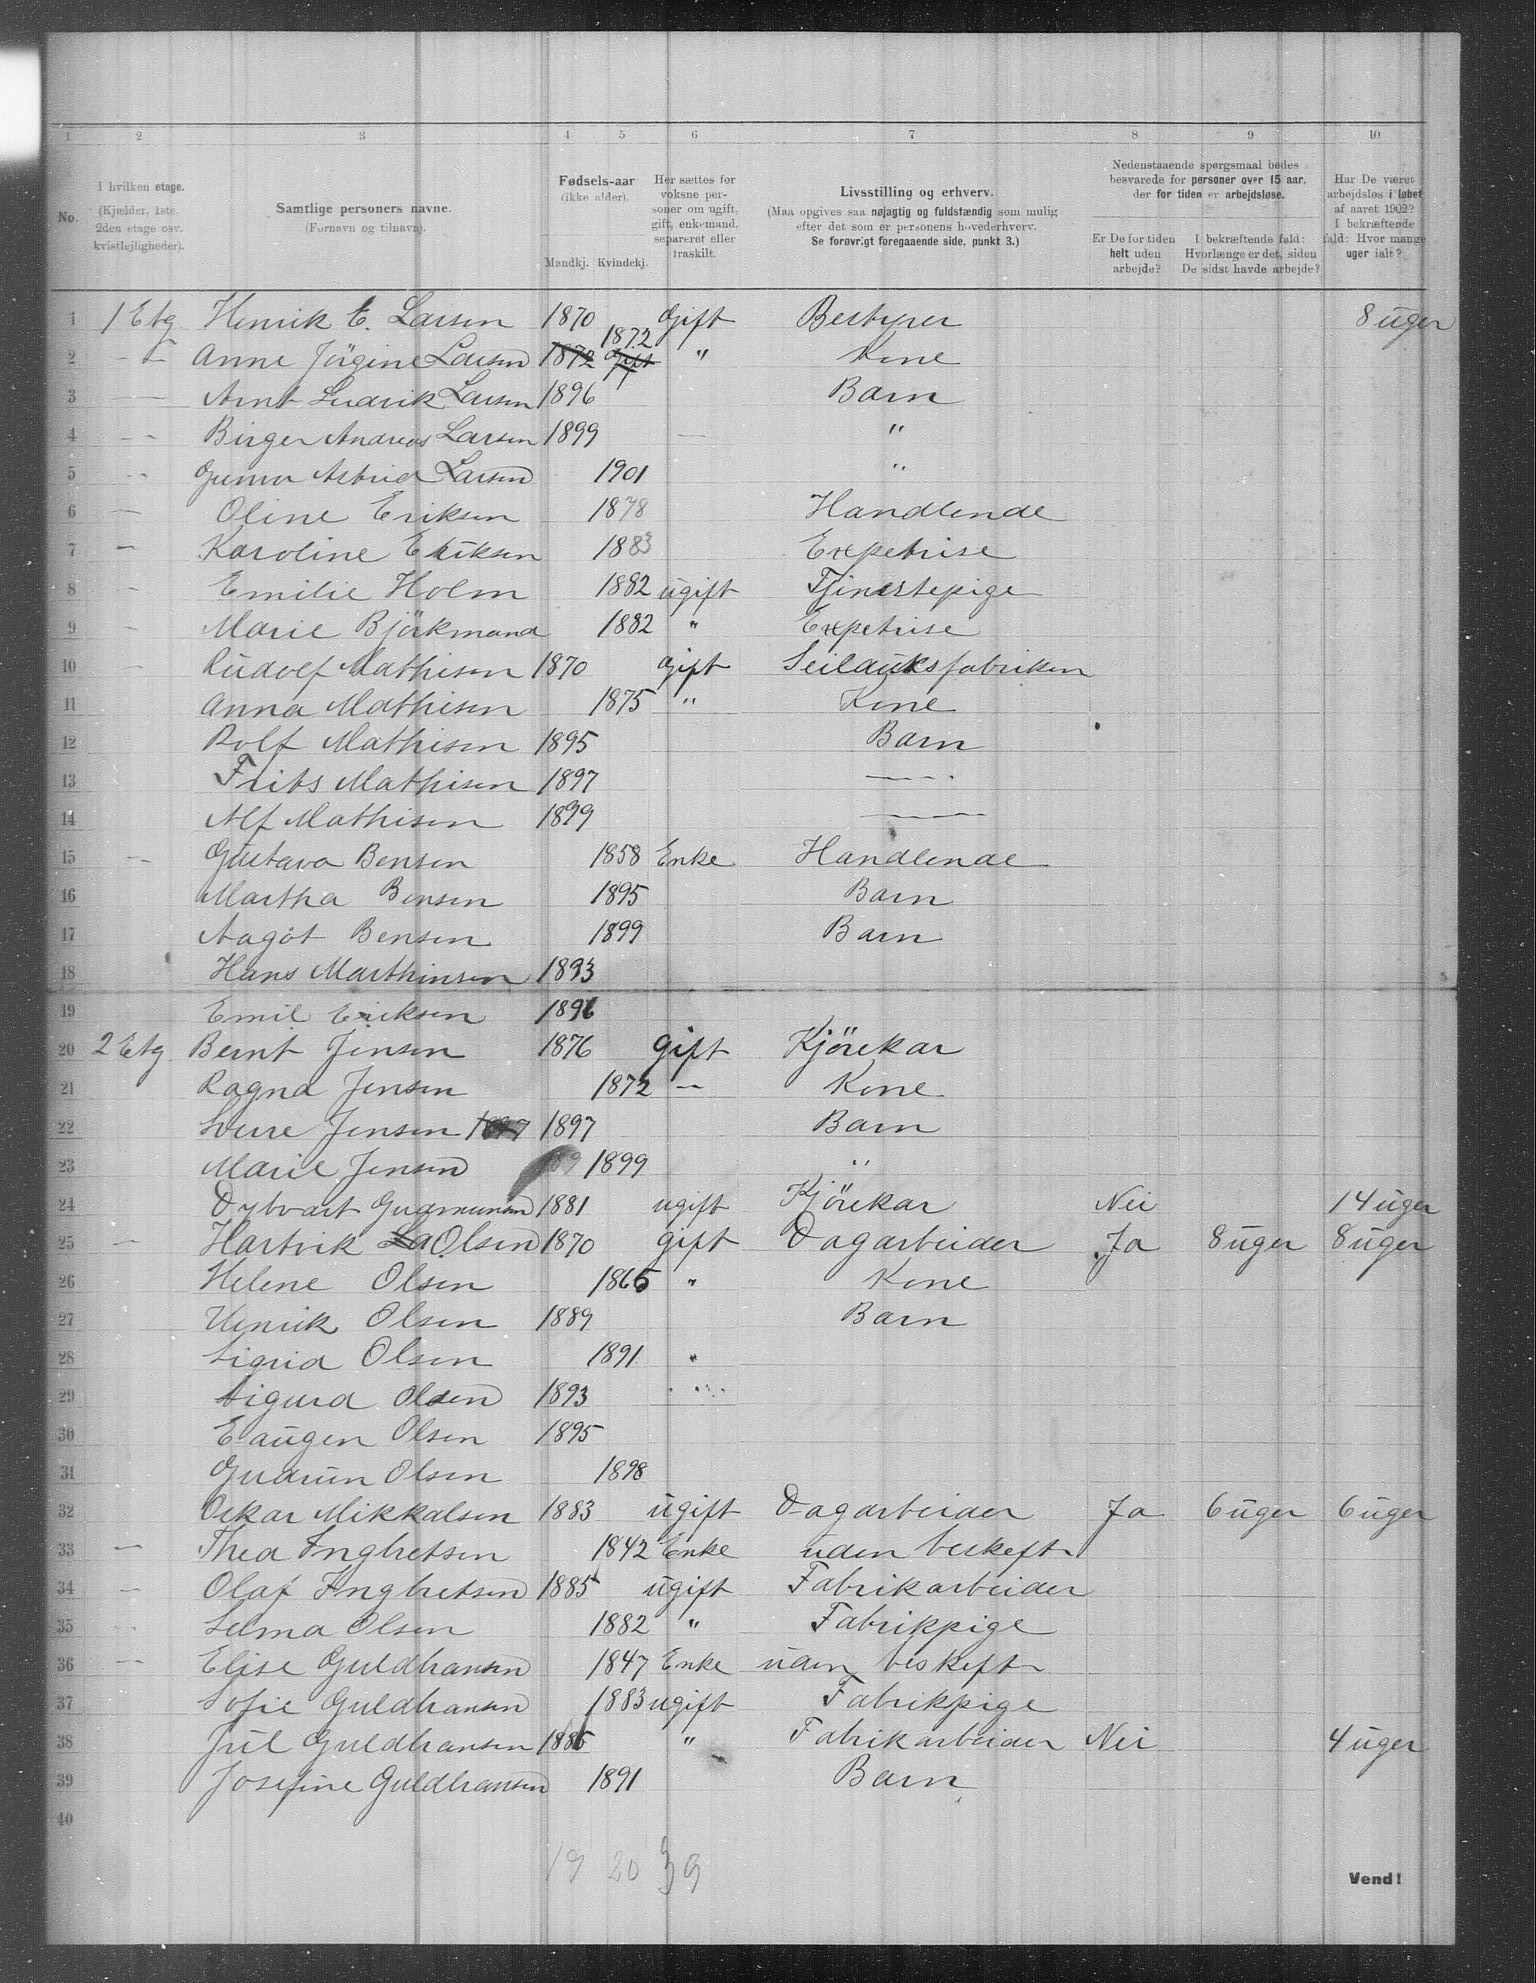 1 2 3 4 5 6 7 8 9 10
No.
I hvilken etage. (Kjælder, 1ste. 2den etage osv. kvistlejligheder).
Samtlige personers navne. (Fornavn og tilnavn).
Fødsels-aar (ikke alder). Mandkj. Kvindekj.
Her sættes for voksne personer om ugift, gift, enkemand, separeret eller fraskilt.
Livsstilling og erhverv. (Maa opgives saa nøjagtig og fuldstændig som mulig efter det som er personens hovederhverv. Se forøvrigt foregaaende side, punkt 3.)
Nedenstaaende spørgsmaal bedes besvarede for personer over 15 aar, der for tiden er arbejdsløse.
Er De for tiden helt uden arbejde?
I bekræftende fald: Hvorlænge er det, siden De sidst havde arbejde?
Har De været arbejdsløs i løbet af aaret 1902? I bekræftende fald: Hvor mange uger ialt?
1 1 Etg Henrik E. Larsen 1870 Gift Bestyrer 8 uger
2 - - Anne Jörgine Larsen 1872 Gift 1872 " Kone
3 — Arnt Ludvik Larsen 1896 Barn
4 - - Birger Andreas Larsen 1899 — "
5 - - Gunvor Astrid Larsen 1901 "
6 — Oline Eriksen 1878 Handlende
7 - Karoline Eriksen 1883 Expetrise
8 - Emilie Holm 1882 ugift Tjinestepige
9 - Marie Björkmand 1882 " Expetrise
10 - Rudolf Mathisen 1870 Gift Seilduksfabriken
11 Anna Mathisen 1875 " Kone
12 Rolf Mathisen 1895 Barn
13 Frits Mathisen 1897 —
14 Alf Mathisen 1899 —
15 - Gustava Bensen 1858 Enke Handlende
16 Martha Bensen 1895 Barn
17 Aagöt Bensen 1899 Barn
18 Hans Marthinsen 1893
19 Emil Eriksen 1896
20 2 Etg. Bernt Jensen 1876 gift Kjörekar
21 Ragna Jensen 1872 - Kone
22 Sverre Jensen 1897 1897 Barn
23 Marie Jensen 1899 "
24 Gudmunsen 1881 ugift Kjörekar Nei 14 uger
25 - Hartvik Olsen 1870 gift Dagarbeider Ja 8 uger 8 uger
26 Helene Olsen 1865 " Kone
27 Henrik Olsen 1889 Barn
28 Sigrid Olsen 1891 "
29 Sigurd Olsen 1893
30 Eaugen Olsen 1895
31 Gudrun Olsen 1898
32 Oskar Mikkalsen 1883 ugift Dagarbeider Ja 6 uger 6 uger
33 - Thea Ingbretsen 1842 Enke uden beskeft
34 - Olaf Ingbretsen 1885 ugift Fabrikarbeider
35 - Selma Olsen 1882 " Fabrikpige
36 - Elise Guldhansen 1847 Enke uden beskeft
37 Sofie Guldhansen 1883 ugift Fabrikpige
38 Jul Guldhansen 1885 " Fabrikarbeider Nei 4 uger
39 Josefine Guldhansen 1891 Barn
40
19 20 39
Vend!